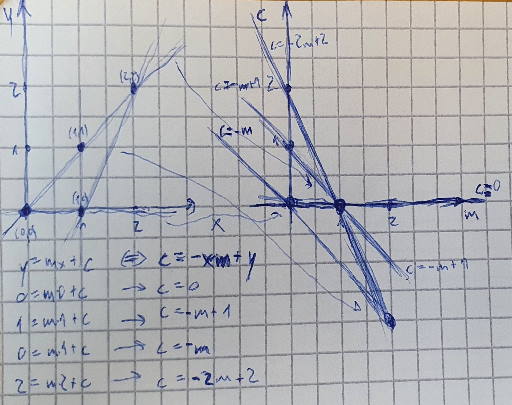 y
2
(2,2)
1
(1,1)
(0,0)
(1,0)
1
2
x
c
c=-2m+2
2
c=-m+1
1
c=-m
c=0
1
2
m
c=-m+1
y=mx+c ⇔ c=-xm+y
0=m0+c → c=0
1=m1+c → c=-m+1
0=m1+c → c=-m
2=m2+c → c=-2m+2